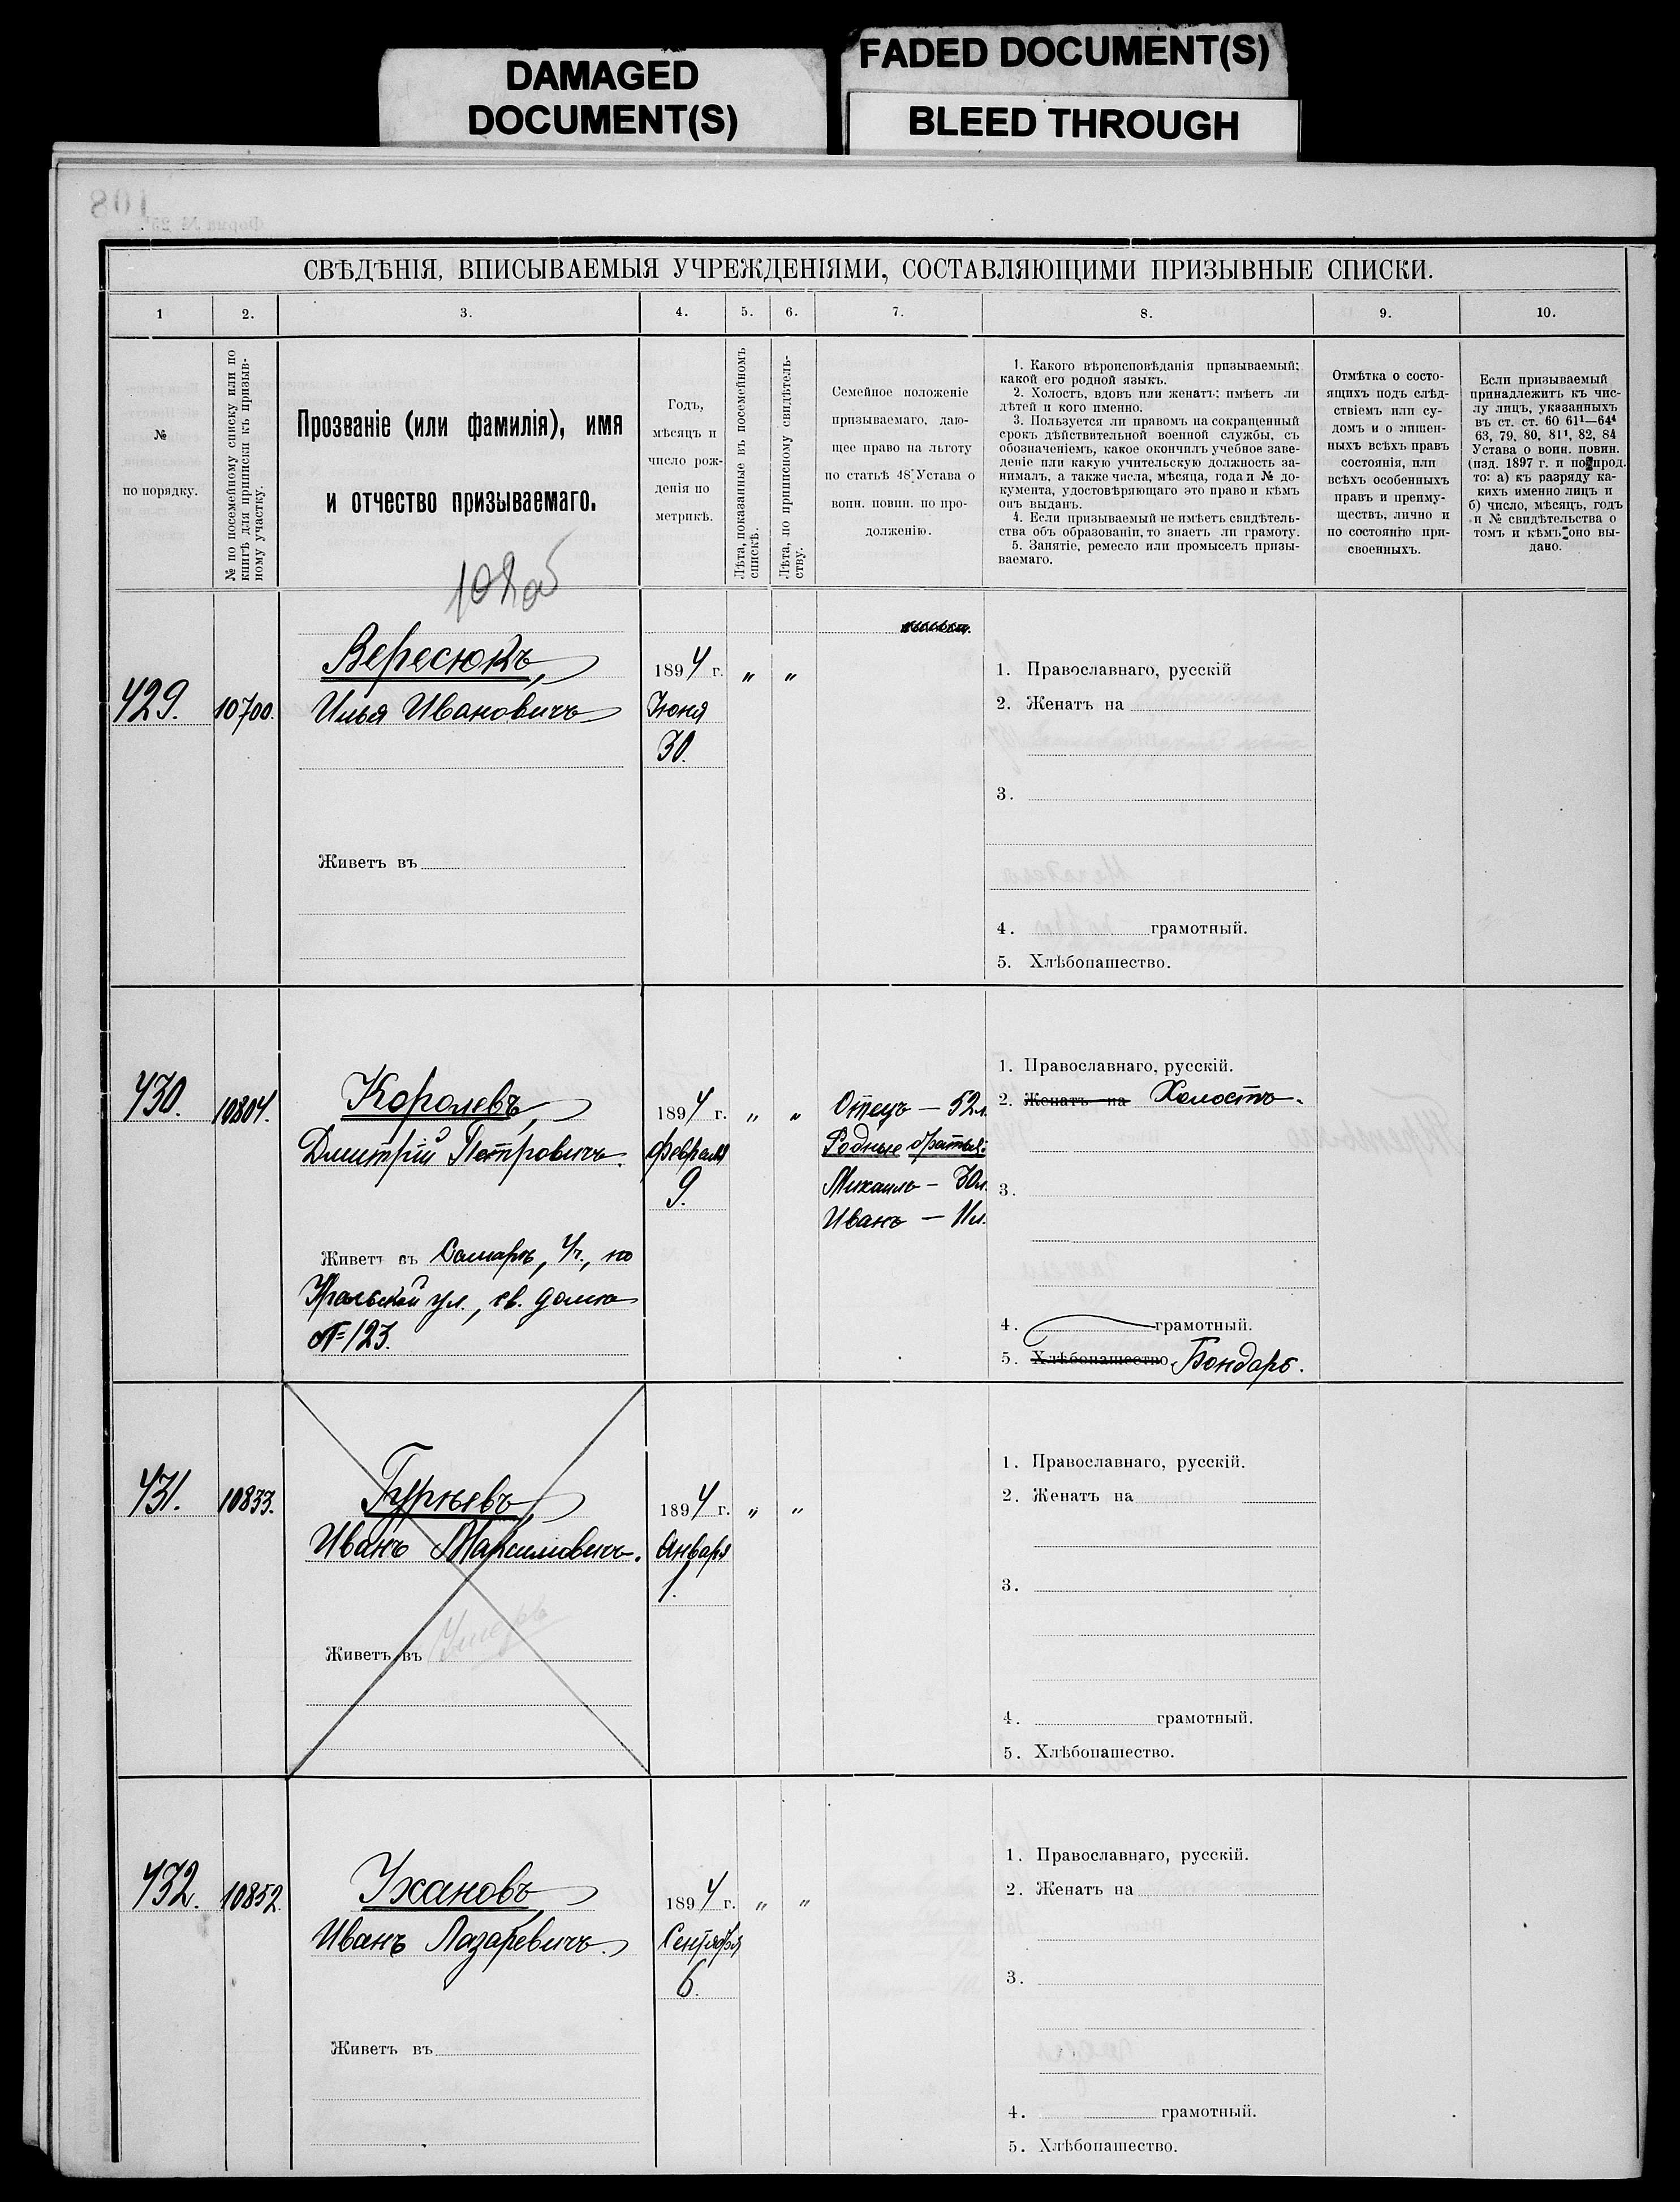 DAMAGED
DOCUMENT(S)
FADED DOCUMENT(S)
BLEED THROUGH
108
Форма № 25
СВѢДѢНІЯ, ВПИСЫВАЕМЫЯ УЧРЕЖДЕНІЯМИ, СОСТАВЛЯЮЩИМИ ПРИЗЫВНЫЕ СПИСКИ.
1 2. 3. 4. 5. 6. 7. 8. 9. 10.
№
по порядку.
№ по посемейному списку или по
книгѣ для приписки къ призыв-
ному участку.
Прозваніе (или фамилія), имя
и отчество призываемаго.
Годъ,
мѣсяцъ и
число рож-
денія по
метрикѣ.
Лѣта, показанные въ посемейномъ
спискѣ.
Лѣта, по приписному свидѣтель-
ству.
Семейное положеніе
призываемаго, даю-
щее право на льготу
по статьѣ 48 Устава о
воин. повин. по про-
долженію.
1. Какого вѣроисповѣданія призываемый;
какой его родной языкъ.
2. Холостъ, вдовъ или женатъ; имѣетъ ли
дѣтей и кого именно.
3. Пользуется ли правомъ на сокращенный
срокъ дѣйствительной военной службы, съ
обозначеніемъ, какое окончилъ учебное заве-
деніе или какую учительскую должность за-
нималъ, а также числа, мѣсяца, года и № до-
кумента, удостовѣряющаго это право и кѣмъ
онъ выданъ.
4. Если призываемый не имѣетъ свидѣтель-
ства объ образованіи, то знаетъ ли грамоту.
5. Занятіе, ремесло или промыселъ призы-
ваемаго.
Отмѣтка о состо-
ящихъ подъ слѣд-
ствіемъ или су-
домъ и о лишен-
ныхъ всѣхъ правъ
состоянія, или
всѣхъ особенныхъ
правъ и преиму-
ществъ, лично и
по состоянію при-
своенныхъ.
Если призываемый
принадлежитъ къ чис-
лу лицъ, указанныхъ
въ ст. ст. 60 61¹—64⁴
63, 79, 80, 81¹, 82, 84
Устава о воин. повин.
(изд. 1897 г. и по прод.
то: а) къ разряду ка-
кихъ именно лицъ и
б) число, мѣсяцъ, годъ
и № свидѣтельства о
томъ и кѣмъ оно вы-
дано.
108 об
429. 10700.
Вересюкъ,
Илья Ивановичъ
Живетъ въ
1894 г. " "
Іюня
30.
1. Православнаго, русскій
2. Женатъ на
3.
4. грамотный.
5. Хлѣбопашество.
430. 10804.
Королевъ,
Дмитрій Петровичъ.
Живетъ въ Самарѣ, 4ч., по
Уральской ул., св. домъ
№ 123.
1894 г. " "
Февраля
9.
Отецъ — 52л.
Родные братья:
Михаилъ — 30л.
Иванъ — 11л.
1. Православнаго, русскій.
2. Женатъ на Холостъ.
3.
4. грамотный.
5. Хлѣбопашество Бондарь.
431. 10833.
Гурьевъ,
Иванъ Максимовичъ.
Живетъ въ Умеръ
1894 г. " "
Января
1.
1. Православнаго, русскій.
2. Женатъ на
3.
4. грамотный.
5. Хлѣбопашество.
432. 10852.
Ухановъ,
Иванъ Лазаревичъ.
Живетъ въ
1894 г. " "
Сентября
6.
1. Православнаго, русскій.
2. Женатъ на
3.
4. грамотный.
5. Хлѣбопашество.